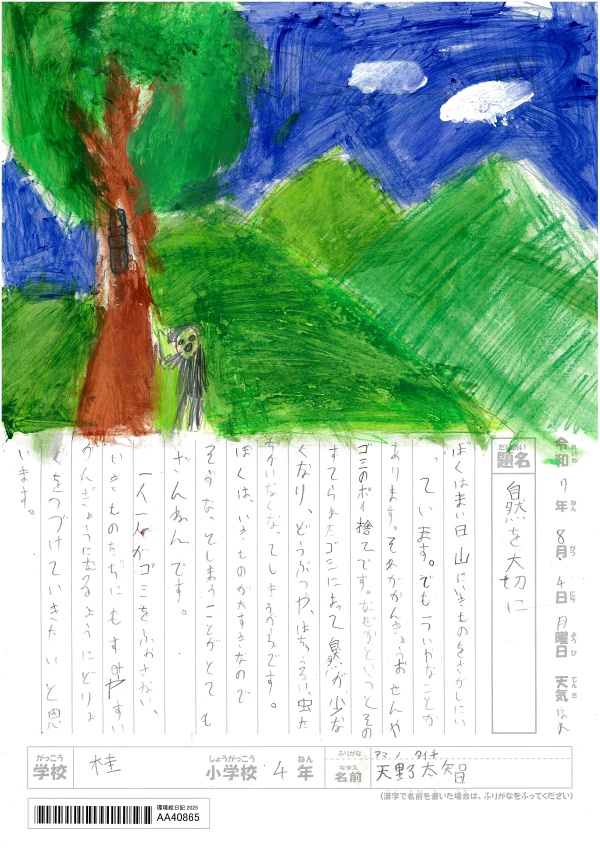 令和7年8月4日月曜日 天気 はれ
題名 自然を大切に
ぼくはまい日山にいきものをさがしにい
っています。でも一ついやなことが
あります。それがかんきょうおせんや
ゴミのポイ捨てです。なぜかというとその
すてられたゴミによって自然が少な
くなり、どうぶつや、はちゅうるい、虫た
ちがいなくなってしまうからです。
ぼくは、いきものが大すきなので
そうなってしまうことがとても
ざんねんです。
一人一人がゴミをふやさない、
いきものたちにもすみやすい
かんきょうになるようにどりょ
くをつづけていきたいと思
います。
がっこう 学校 桂 しょうがっこう 小学校 4 ねん 年
ふりがな アマノ タイチ
なまえ 名前 天野太智
(漢字で名前を書いた場合は、ふりがなをふってください)
環境絵日記 2025
AA40865